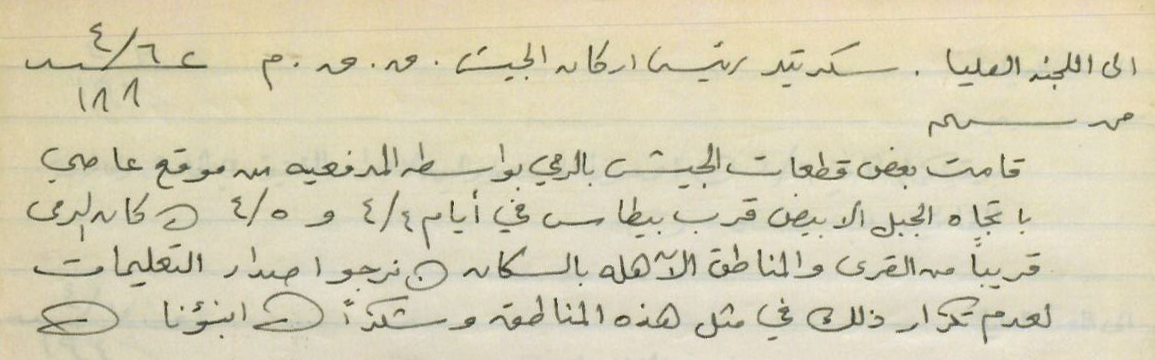 الى اللجنه العليا . سكرتير رئيس اركان الجيش . ق . ق . م ٤/٦
١٨٨
من
قامت بعض قطعات الجيش بالرمي بواسطه المدفعيه من موقع عاصي
باتجاه الجبل الابيض قرب بيطاس في أيام ٤/٤ و ٤/٥ كان الرمي
قريباً من القرى والمناطق الآهله بالسكان نرجوا اصدار التعليمات
لعدم تكرار ذلك في مثل هذه المناطق وشكراً انبؤنا